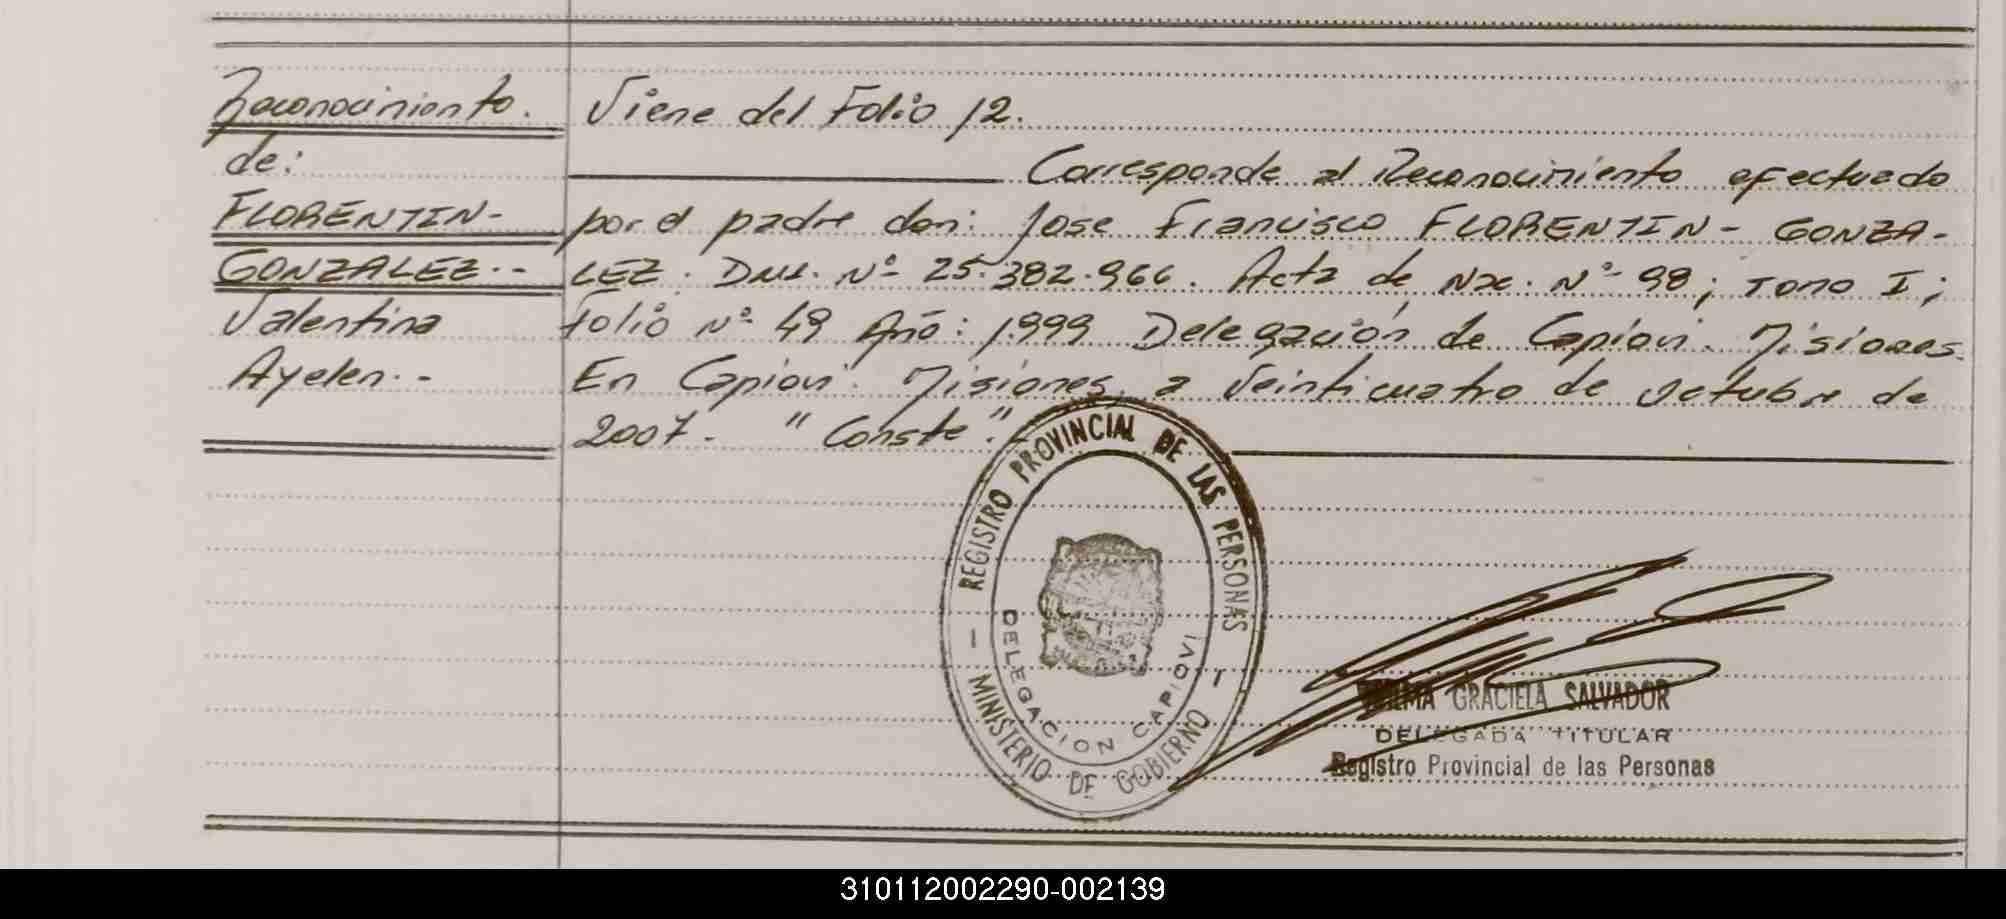 Reconocimiento.
de:
FLORENTIN-
GONZALEZ.-
Valentina
Ayelen.-
Viene del Folio 12.
Corresponde al Reconocimiento efectuado
por el padre don: Jose Francisco FLORENTIN - GONZA-
LEZ. DNI. Nº 25.382.966. Acta de Nac. Nº 98; Tomo I;
Folio Nº 49 Año: 1.999 Delegación de Capiovi. Misiones.
En Capiovi. Misiones, a Veinticuatro de Octubre de
2007.- "Conste".-
REGISTRO PROVINCIAL DE LAS PERSONAS
DELEGACION CAPIOVI
MINISTERIO DE GOBIERNO
GRACIELA SALVADOR
DELEGADA TITULAR
Registro Provincial de las Personas
310112002290-002139